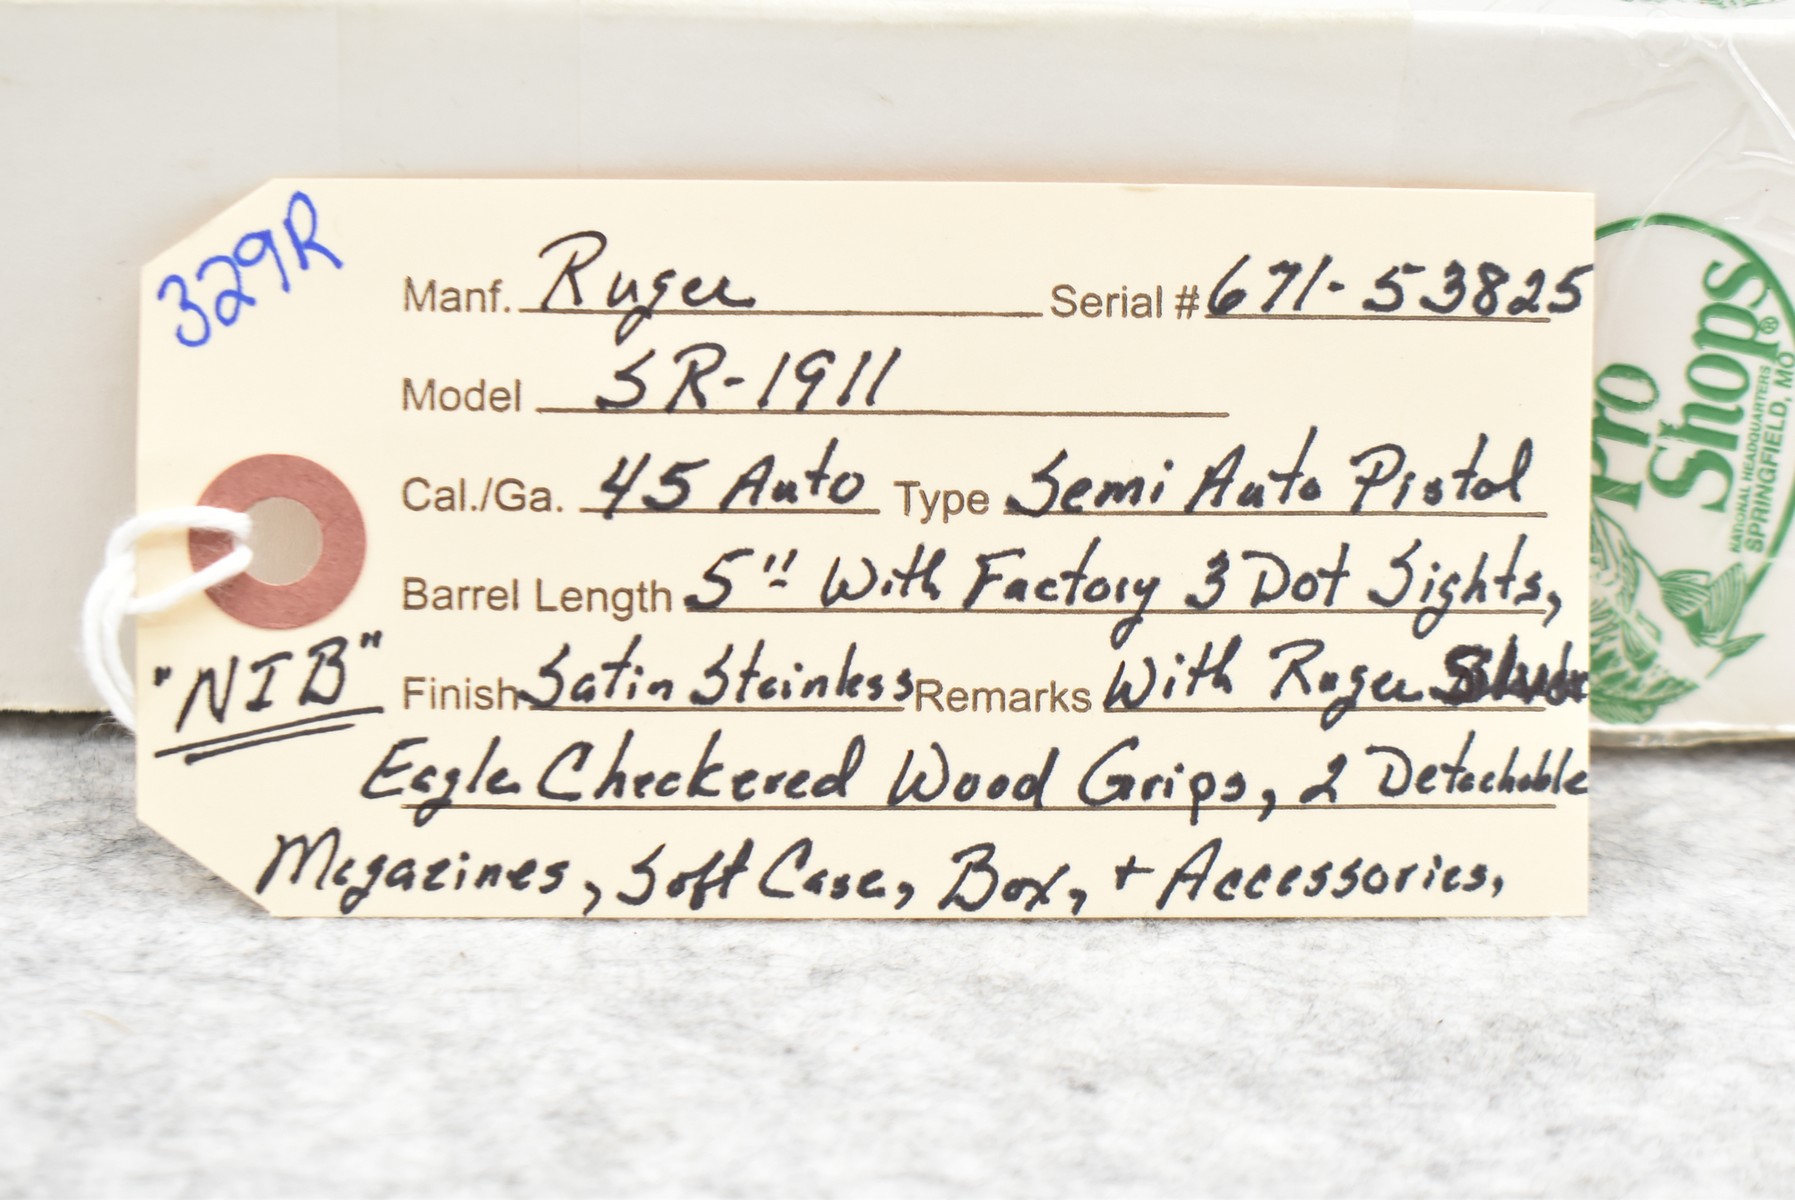 329R
Manf. Ruger Serial # 671-53825
Model SR-1911
Cal./Ga. 45 Auto Type Semi Auto Pistol
Barrel Length 5" With Factory 3 Dot Sights,
"NIB"
Finish Satin Stainless Remarks With Ruger
Eagle Checkered Wood Grips, 2 Detachable
Magazines, Soft Case, Box, + Accessories,
Pro
Shops®
NATIONAL HEADQUARTERS
SPRINGFIELD, MO